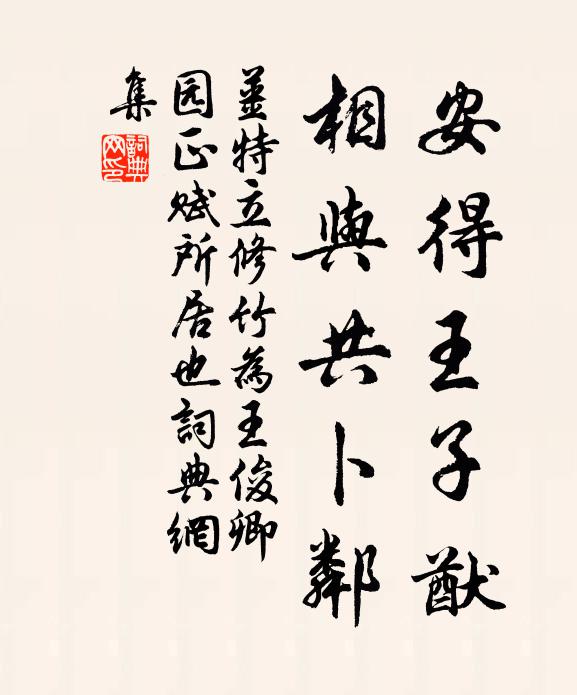 安得王子猷
相與共卜鄰
姜特立修竹為王俊卿
园正赋所居也詞典網
集
詞典网印